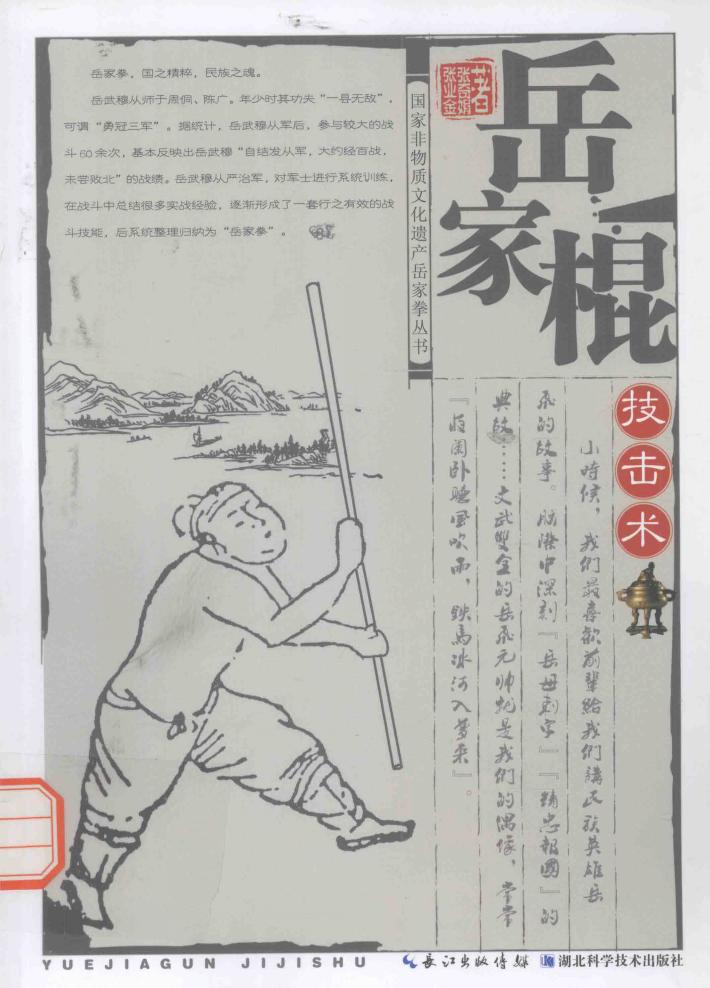 岳家拳，国之精粹，民族之魂。
岳武穆从师于周侗、陈广。年少时其功夫“一县无敌”，
可谓“勇冠三军”。据统计，岳武穆从军后，参与较大的战
斗60余次，基本反映出岳武穆“自结发从军，大约经百战，
未尝败北”的战绩。岳武穆从严治军，对军士进行系统训练，
在战斗中总结很多实战经验，逐渐形成了一套行之有效的战
斗技能，后系统整理归纳为“岳家拳”。
国家非物质文化遗产岳家拳丛书
张奇娟
张业金
著
岳家棍
技击术
小時候，我们最喜歡前輩給我们講民族英雄岳
飛的故事。脑際中深刻『岳母刺字』『精忠報國』的
典故……文武雙全的岳飛元帅就是我们的偶像，常常
『夜闌卧聽風吹雨，鉄馬冰河入夢来』。
YUEJIAGUN JIJISHU
长江出版传媒
湖北科学技术出版社